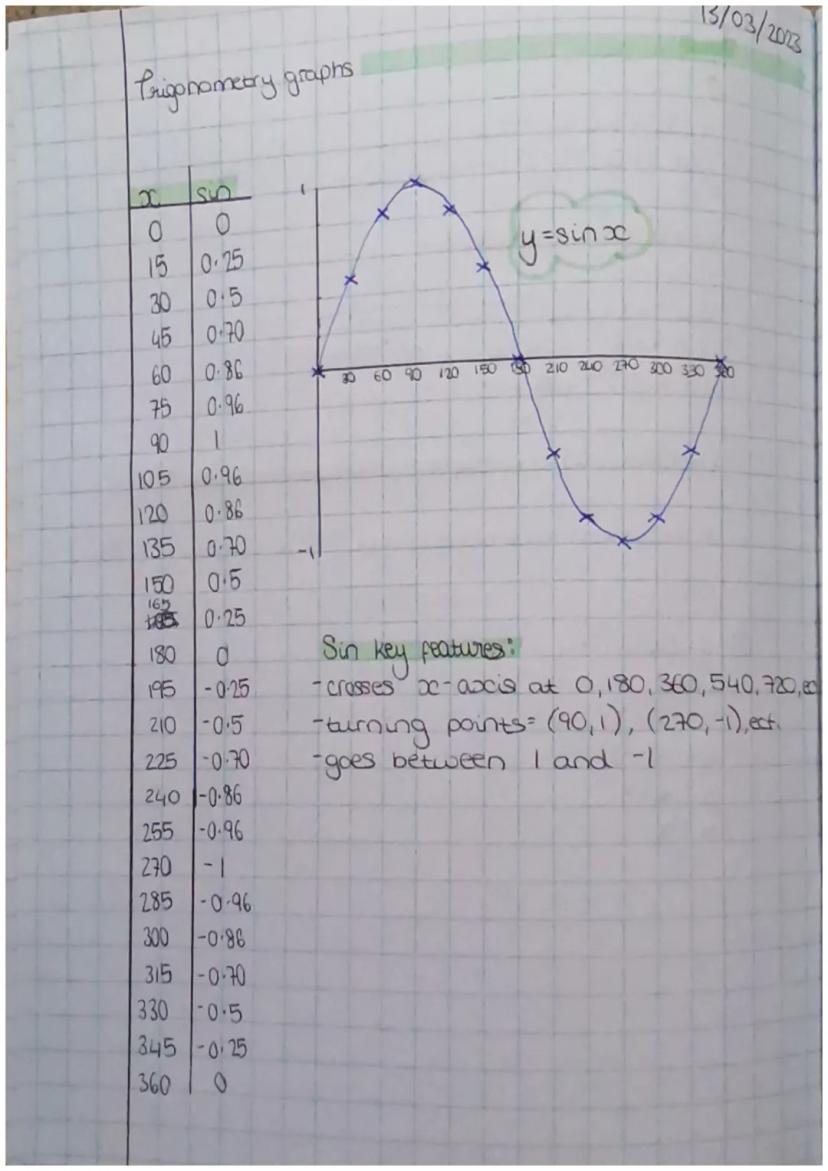 13/03/2023
Trigonometry graphs
x sin
0 0
15 0.25
30 0.5
45 0.70
60 0.86
75 0.96
90 1
105 0.96
120 0.86
135 0.70
150 0.5
165 0.25
180 0
195 -0.25
210 -0.5
225 -0.70
240 -0.86
255 -0.96
270 -1
285 -0.96
300 -0.86
315 -0.70
330 -0.5
345 -0.25
360 0
1
y=sin x
30 60 90 120 150 180 210 240 270 300 330 360
-1
Sin key features:
-crosses x-axis at 0, 180, 360, 540, 720, ec
-turning points= (90, 1), (270, -1), ect.
-goes between 1 and -1